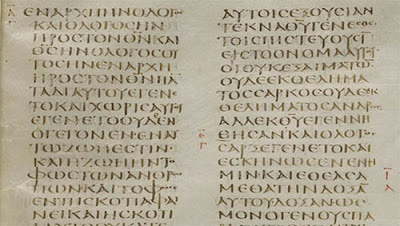 ΕΝΑΡΧΗΗΝΟΛΟΓΟϹ
ΚΑΙΟΛΟΓΟϹΗΝ
ΠΡΟϹΤΟΝΘΝΚΑΙ
ΘϹΗΝΟΛΟΓΟϹΟΥ
ΤΟϹΗΝΕΝΑΡΧΗ
ΠΡΟϹΤΟΝΘΝΠΑ
ΤΑΔΙΑΥΤΟΥΕΓΕΝΕ
ΤΟΚΑΙΧΩΡΙϹΑΥΤΟΥ
ΕΓΕΝΕΤΟΟΥΔΕΝ
ΟΓΕΓΟΝΕΝΕΝΑΥ
ΤΩΖΩΗΕϹΤΙΝ
ΚΑΙΗΖΩΗΗΝΤΟ
ΦΩϹΤΩΝΑΝΘΡΩ
ΠΩΝΚΑΙΤΟΦΩϹ
ΕΝΤΗϹΚΟΤΙΑΦΑΙ
ΝΕΙΚΑΙΗϹΚΟΤΙ
ΑΥΤΟΙϹΕΞΟΥϹΙΑΝ
ΤΕΚΝΑΘΥΓΕΝΕϹΘΑΙ
ΤΟΙϹΠΙϹΤΕΥΟΥϹΙ
ΕΙϹΤΟΟΝΟΜΑΑΥΤΟΥ
ΟΙΟΥΚΕΞΑΙΜΑΤΩ
ΟΥΔΕΕΚΘΕΛΗΜΑ
ΤΟϹϹΑΡΚΟϹΟΥΔΕΕΚ
ΘΕΛΗΜΑΤΟϹΑΝΔΡΟϹ
ΑΛΛΕΚΘΥΕΓΕΝΝΗ
ΘΗϹΑΝΚΑΙΟΛΟΓΟϹ
ϹΑΡΞΕΓΕΝΕΤΟΚΑΙ
ΕϹΚΗΝΩϹΕΝΕΝΗ
ΜΙΝΚΑΙΕΘΕΑϹΑ
ΜΕΘΑΤΗΝΔΟΞΑ
ΑΥΤΟΥΔΟΞΑΝΩϹ
ΜΟΝΟΓΕΝΟΥϹΠΑ